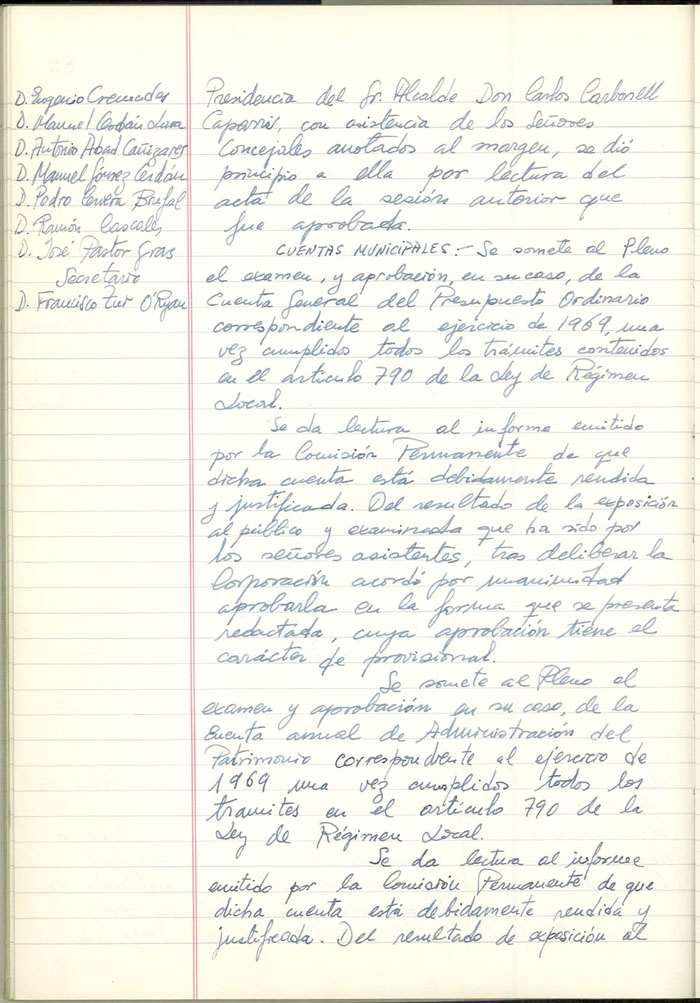 D. Eugenio Cremades
D. Manuel Cerdán Lara
D. Antonio Abad Cañizares
D. Manuel Gómez Cerdán
D. Pedro Cervera Brufal
D. Ramón Cascales
D. José Pastor Gras
Secretario
D. Francisco O'Ryan
Presidencia del Sr. Alcalde Don Carlos Carbonell
Caparrós, con asistencia de los Señores
Concejales anotados al margen, se dió
principio a ella por lectura del
acta de la sesión anterior que
fue aprobada.
CUENTAS MUNICIPALES.- Se somete al Pleno
el examen, y aprobación, en su caso, de la
Cuenta General del Presupuesto Ordinario
correspondiente al ejercicio de 1969, una
vez cumplidos todos los trámites contenidos
en el artículo 790 de la Ley de Régimen
Local.
Se da lectura al informe emitido
por la Comisión Permanente de que
dicha cuenta está debidamente rendida
y justificada. Del resultado de la exposición
al público y examinada que ha sido por
los señores asistentes, tras deliberar la
Corporación acordó por unanimidad
aprobarla en la forma que se presenta
redactada, cuya aprobación tiene el
carácter de provisional.
Se somete al Pleno el
examen y aprobación en su caso, de la
cuenta anual de Administración del
Patrimonio correspondiente al ejercicio de
1969 una vez cumplidos todos los
tramites en el artículo 790 de la
Ley de Régimen Local.
Se da lectura al informe
emitido por la Comisión Permanente de que
dicha cuenta está debidamente rendida y
justificada. Del resultado de exposición al